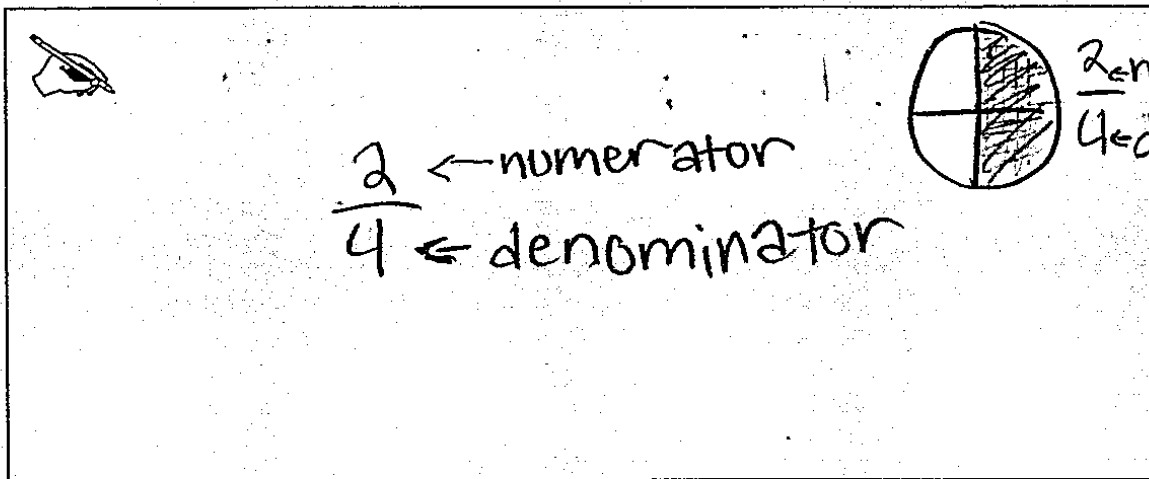 2 ← numerator
4 ← denominator
2 ← n
4 ← d